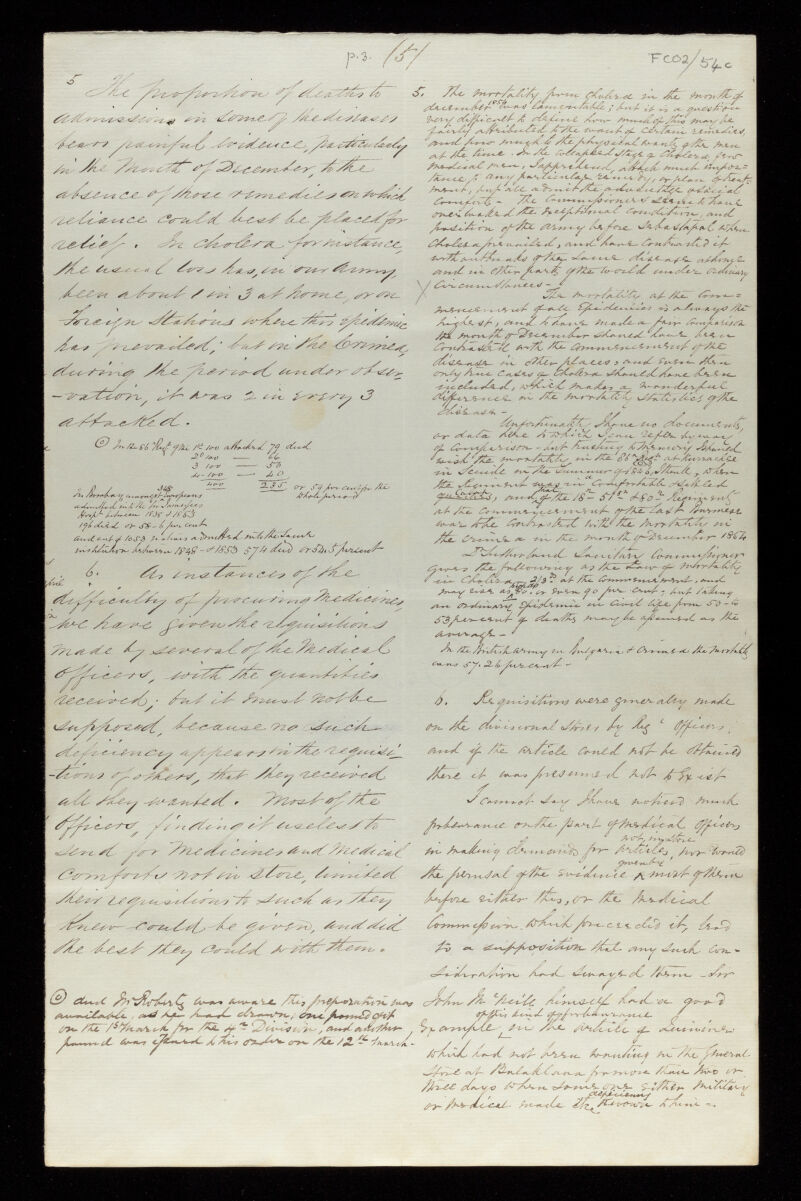 p.3. (5)
FC02/54c
5 The proportion of deaths to
admissions in some of the diseases
bears painful evidence, particularly
in the Month of December, to the
absence of those remedies on which
reliance could best be placed for
relief. In cholera for instance,
the usual loss has, in our Army,
been about 1 in 3 at home, or on
Foreign Stations where this epidemic
has prevailed; but on the Crimea,
during the period under obser-
-vation, it was 2 in every 3
attacked.
In the 86 Regt of the 1st 100 attacked 79 died
2d 100 — 66
3 100 — 50
4 100 — 40
400 235 or 59 per cent for the
whole period
In Bombay amongst 348 Europeans
admitted into the
Hospl between 1838 & 1853
196 died or 58-6 per cent
and out of 1053 natives admitted into the same
institution between 1848 & 1853 574 died or 54.5 percent
6. As instances of the
difficulty of procuring Medicines,
we have given the requisitions
made by several of the Medical
Officers, with the quantities
received; but it must not be
supposed, because no such
deficiency appears in the requisi-
-tions of others, that they received
all they wanted. Most of the
Officers, finding it useless to
send for Medicines and Medical
Comforts not in store, limited
their requisitions to such as they
knew could be given, and did
the best they could with them.
and Dr Roberts was aware this preparation was
available, as he had drawn, one pound of it
on the 1st March for the 4th Division, and another
pound was issued to his order on the 12th March-
5. The mortality from Cholera in the month of
december 1854 was lamentable; but it is a question
very difficult to define how much of this may be
fairly attributed to the want of certain remedies,
and how much to the physical wants of the men
at the time. In the collapsed stage of Cholera, few
medical men, I apprehend, attach much impor-
tance, to any particular remedy, or plan of treat-
ment, but all admit the advantage of social
comforts - The Commissioners seem to have
overlooked the exceptional condition, and
position of the army before Sebastopol when
Cholera prevailed, and have contrasted it
with outbreaks of the same disease at home
and in other parts of the world under ordinary
Circumstances-
The mortality at the Com-
mencement of all Epidemics is always the
highest, and to have made a fair Comparison
the month of December should have been
Contrasted with the Commencement of the
disease in other places, and even then
only true cases of Cholera should have been
included, which makes a wonderful
difference in the mortality statistics of the
disease-
Unfortunately, I have no documents,
or data here to which I can refer by way
of Comparison - but trusting to memory I should
wish the mortality in the 86th Regt at Kurrachee
in Scinde in the Summer of 1846, when
the Regiment was in Comfortable & settled
quarters, and of that the 18th - 51st & 80th Regiments
at the Commencement of the last Burmese
war to be Contrasted with the mortality in
the Crimea in the month of December 1854
Dr Sutherland Sanitary Commissioner
gives the following as the Law of mortality
in Cholera 2/3ds at the Commencement, and
may rise as high as 80, or even 90 per cent - but taking
an ordinary Epidemic in Civil life from 50 to
53 per cent of deaths may be assumed as the
average -
In the British army in Bulgaria & Crimea the mortality
was 57.26 per cent -
6. Requisitions were generally made
on the divisional Stores by Regl Officers,
and if the article could not be obtained
there it was presumed not to Exist
I cannot say I have noticed much
forbearance on the part of medical Officers
in making demands for articles not in store, nor would
the perusal of the evidence given by most of them
before either this, or the Medical
Commission which preceded it, lead
to a supposition that any such con-
sideration had swayed them - Sir
John McNeill himself had a good
Example, of this kind of forbearance in the article of quinine
which had not been wanting in the General
Store at Balaklava for more than two or
three days when some one either Military
or Medical made the deficiency known to him -